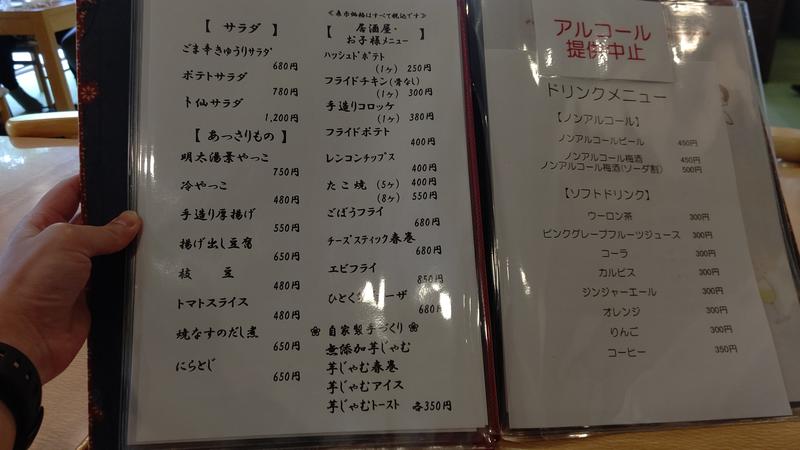 ≪表示価格はすべて税込です≫
【 サラダ 】
ごま辛きゅうりサラダ
680円
ポテトサラダ
780円
ト仙サラダ
1,200円
【 あっさりもの 】
明太湯葉やっこ
750円
冷やっこ
480円
手造り厚揚げ
550円
揚げ出し豆腐
650円
枝 豆
480円
トマトスライス
480円
焼なすのだし煮
650円
にらとじ
650円
【 居酒屋・
お子様メニュー 】
ハッシュドポテト
(1ヶ) 250円
フライドチキン(骨なし)
(1ヶ) 300円
手造りコロッケ
(1ヶ) 380円
フライドポテト
400円
レンコンチップス
400円
たこ焼 (5ヶ) 400円
(8ヶ) 550円
ごぼうフライ
680円
チーズスティック春巻
680円
エビフライ
850円
ひとく
ーザ
680円
自家製手づくり
無添加芋じゃむ
芋じゃむ春巻
芋じゃむアイス
芋じゃむトースト 各350円
アルコール
提供中止
ドリンクメニュー
【ノンアルコール】
ノンアルコールビール 450円
ノンアルコール梅酒 450円
ノンアルコール梅酒(ソーダ割) 500円
【ソフトドリンク】
ウーロン茶 300円
ピンクグレープフルーツジュース 300円
コーラ 300円
カルピス 300円
ジンジャーエール 300円
オレンジ 300円
りんご 300円
コーヒー 350円